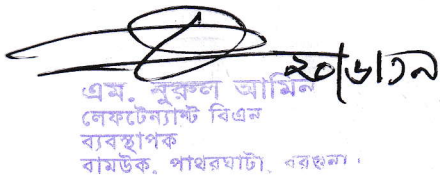 ২০/৬/১৯
এম. নুরুল আমিন
লেফটেন্যান্ট বিএন
ব্যবস্থাপক
বামউক, পাথরঘাটা, বরগুনা।